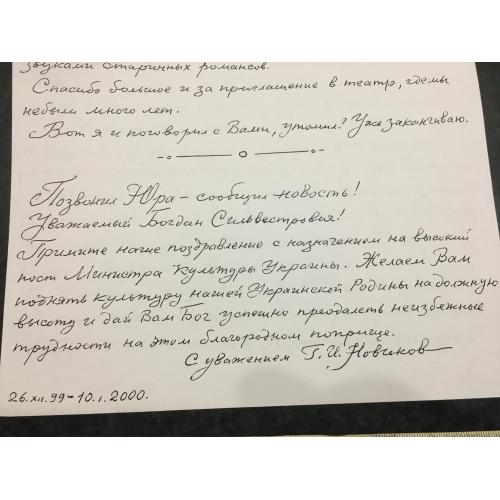 звуками старинных романсов.
Спасибо большое и за приглашение в театр, где мы
небыли много лет.
Вот я и поговорил с Вами, утомил? Уже заканчиваю.
Позвонил Юра – сообщил новость!
Уважаемый Богдан Сильвестрович!
Примите наше поздравление с назначением на высокий
пост Министра Культуры Украины. Желаем Вам
поднять культуру нашей Украинской Родины на должную
высоту и дай Вам Бог успешно преодалеть неизбежные
трудности на этом благородном поприще.
С уважением Г.И.Новиков
26.XII.99–10.I.2000.